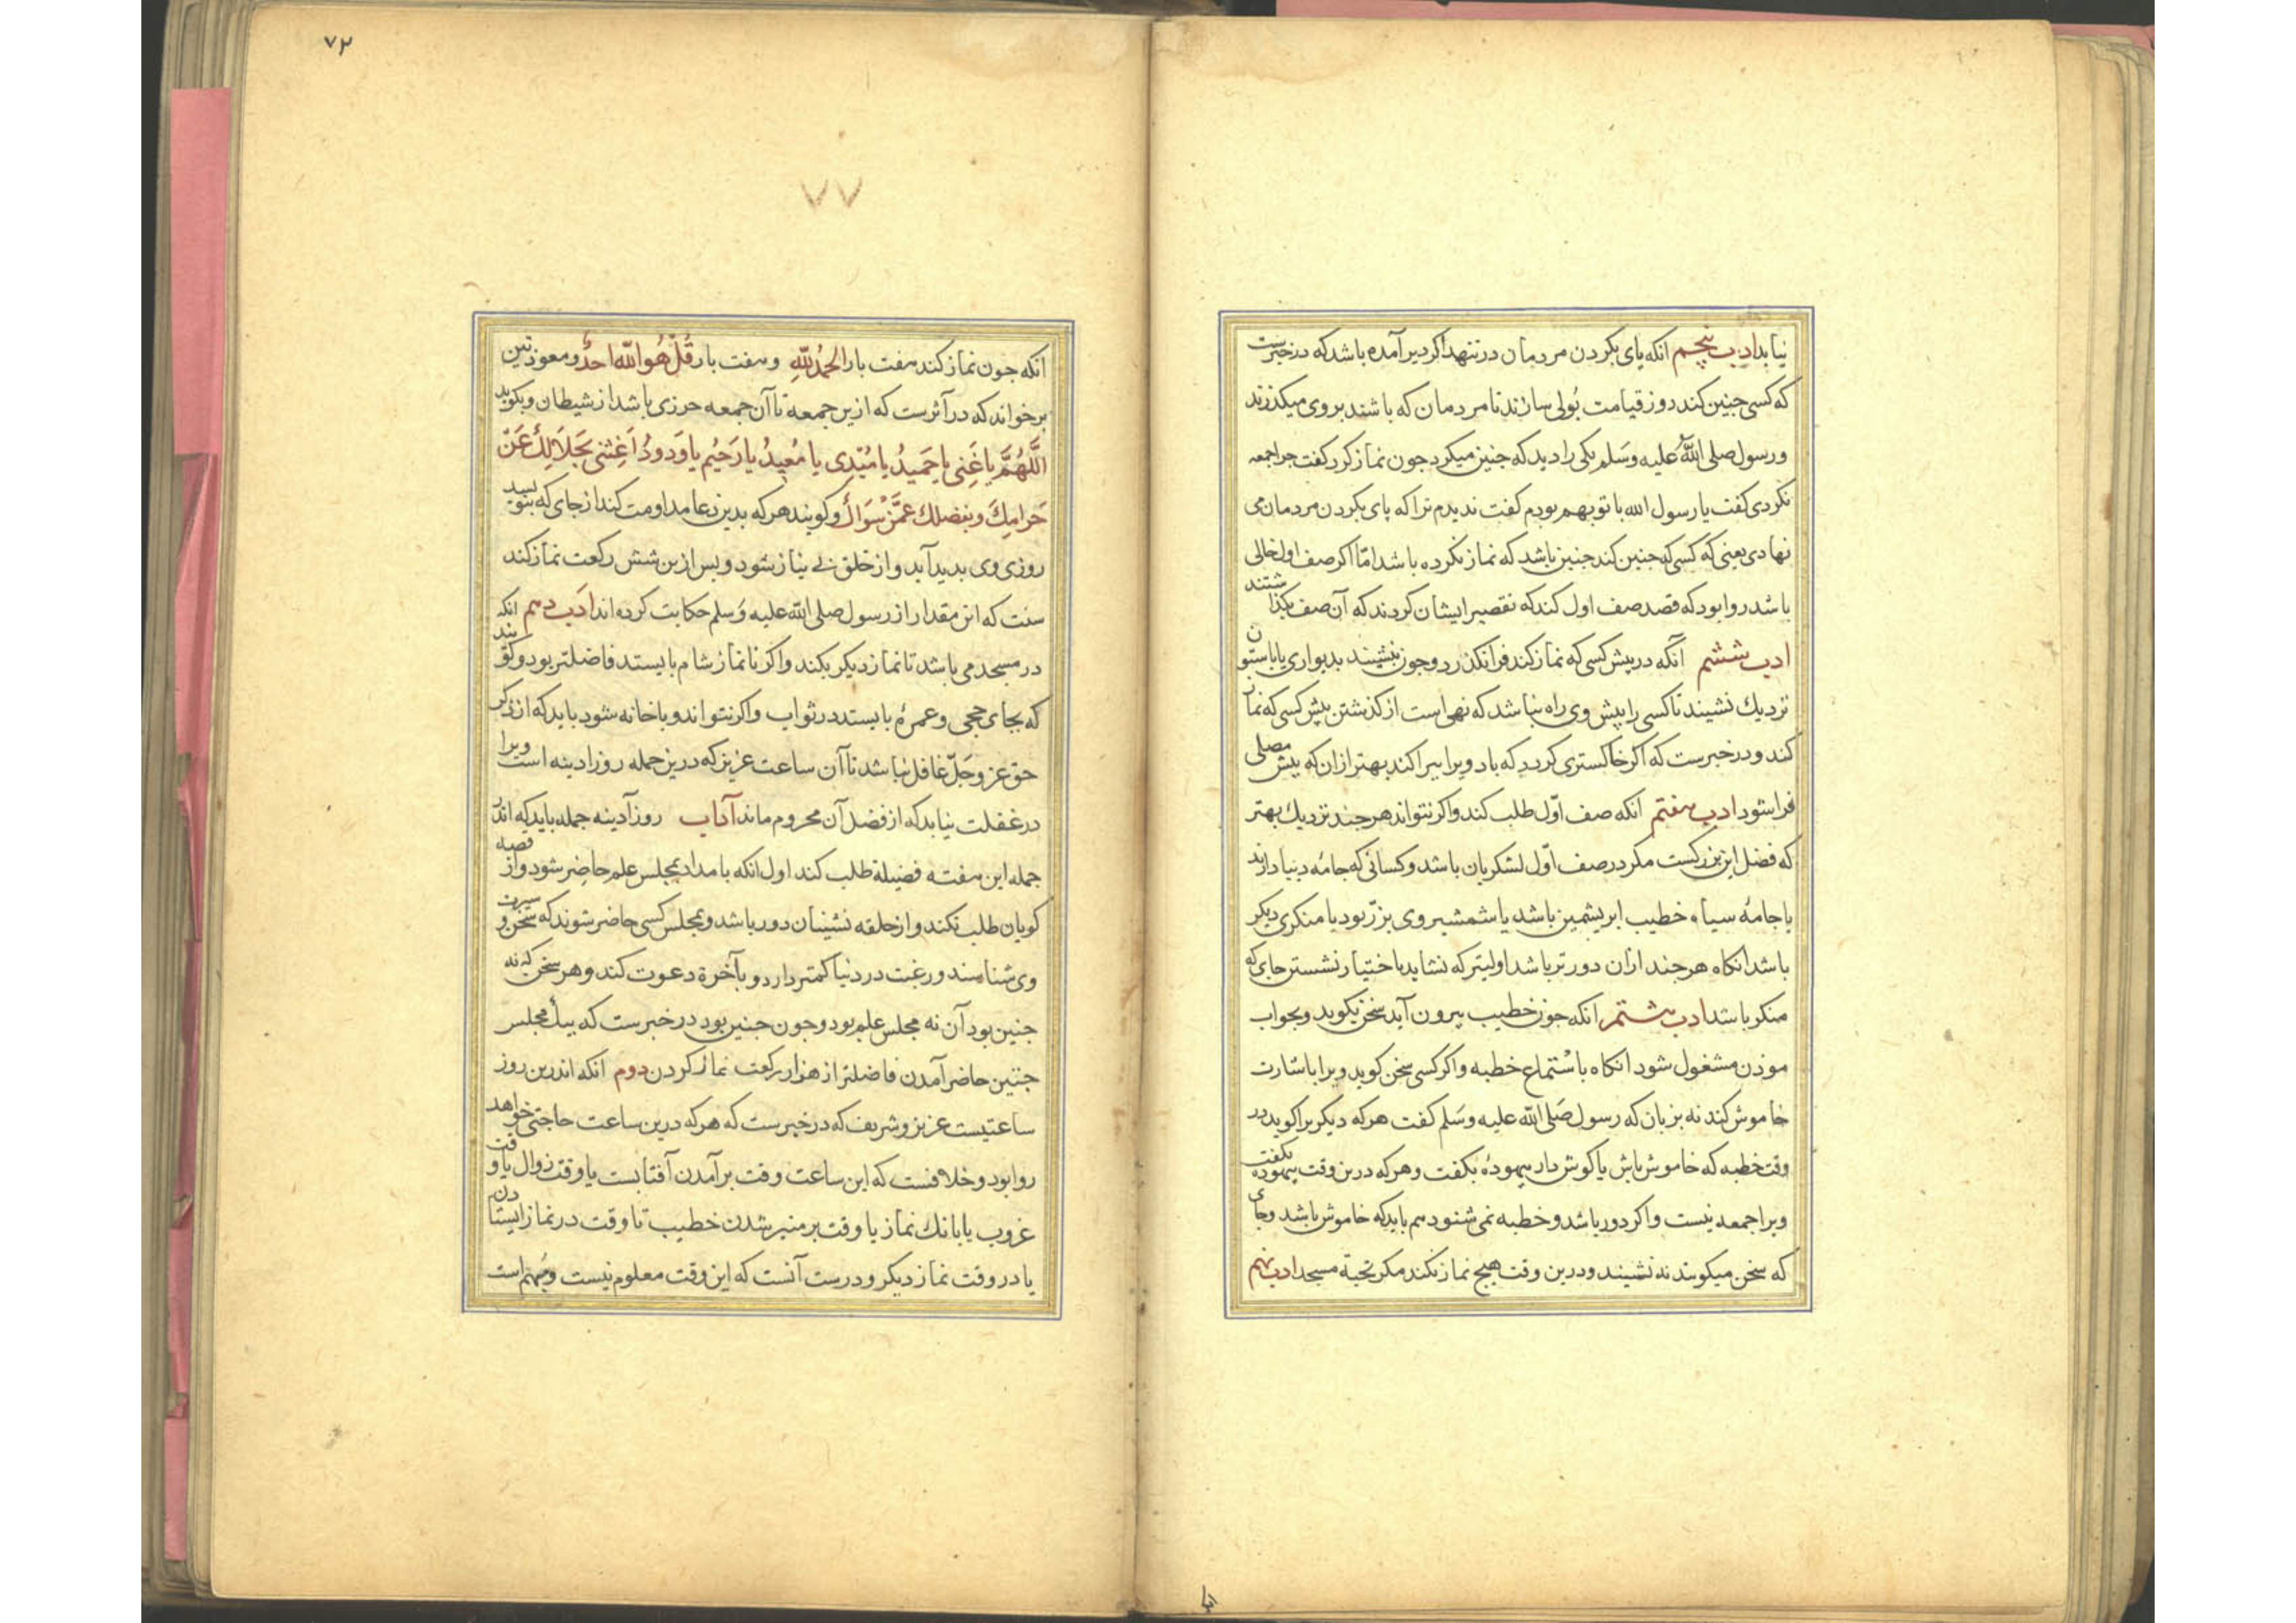 نیابد ادب پنجم انکه پای بکردن مردمان در ننهد اکر دیر آمده باشد که در خبرست
که کسی جنین کند روز قیامت پُولی سازند تا مردمان که باشند بروی میکذرند
و رسول صلی اللّٰه علیه وسَلم یکی را دید که جنین میکرد جون نماز کرد کفت جرا جمعه
نکردی کفت یا رسول الله با تو بهم بودم کفت ندیدم ترا که پای بکردن مردمان می
نهادی یعنی که کسی که جنین کند جنین باشد که نماز نکرده باشد امّا اکر صف اول خالی
باشد روا بود که قصد صف اول کند که تقصیر ایشان کردند که آن صف بکذاشتند
ادب ششم آنکه در پیش کسی که نماز کند فرا نکذرد و جون بنشیند بدیواری یا باستون
نزدیك نشیند تا کسی را پیش وی راه نباشد که نهی است از کذشتن پیش کسی که نماز
کند و در خبرست که اکر خاکستری کردد که باد ویرا ببرا کند بهتر ازان که پیش مصلی
فرا شود ادب هفتم انکه صف اوّل طلب کند و اکر نتواند هرجند نزدیك بهتر
که فضل این بزرکست مکر در صف اوّل لشکریان باشد و کسانی که جامه دیبا دارند
یا جامهٔ سیاه خطیب ابریشمین باشد یا شمشیر وی بزرّ بود یا منکری دیکر
باشد انکاه هرجند ازان دورتر باشد اولیتر که نشاید باختیار نشستن جای که
منکر باشد ادب هشتم انکه جون خطیب بیرون آید سخن نکوید و بجواب
موذن مشغول شود انکاه باستماع خطبه و اکر کسی سخن کوید ویرا باشارت
خاموش کند نه بزبان که رسول صَلی اللّٰه علیه وسَلم کفت هرکه دیکریرا کوید در
وقت خطبه که خاموش باش یا کوش دار بیهوده بکفت و هرکه درین وقت بیهوده بکفت
ویرا جمعه نیست و اکر دور باشد و خطبه نمی شنود هم باید که خاموش باشد و جای
که سخن میکویند ننشیند و درین وقت هیج نماز نکند مکر تحیة مسجد ادب نهم
٧٢
٧٧
انکه جون نماز کند هفت بار الحمدُللّٰهِ و هفت بار قُلْ هُوَ اللّٰه احدٌ و معوذتین
برخواند که در آثرست که ازین جمعه تا آن جمعه حرزی باشد از شیطان و بکوید
اَللّٰهُمَّ یا غَنِی یا حَمیدُ یا مُبْدِی یا مُعِیدُ یا رَحیُم یا وَدودُ اَغِثنی بحَلَالِكَ عَنْ
حَرامِكَ و بفضلك عَمَّنْ سِوَاكَ و کویند هرکه بدین دعا مداومت کند از جای که نبوسد
روزی وی بدید آید و از خلق بی نیاز شود و پس ازین شش رکعت نماز کند
سنت که این مقدار از رسول صلی اللّٰه علیه وَسلم حکایت کرده اند ادَب دهم انکه
در مسجد می باشد تا نماز دیکر بکند و اکر تا نماز شام بایستد فاضلتر بود و کویند
که بجای حجی و عمرهٔ بایستد در ثواب و اکر نتواند و با خانه شود باید که از ذکر
حق عز وجَلّ غافل نباشد تا آن ساعت عزیز که درین جمله روز ادینه است ویرا
در غفلت نیابد که از فضل آن محروم ماند آداب روز آدینه جمله باید که اندر
جمله این هفته فضیلة طلب کند اول انکه بامداد بمجلس علم حاضر شود و از قصه
کویان طلب نکند و از حلقه نشینان دور باشد و بمجلس کسی حاضر شوند که سخن و سیرت
وی شناسند و رغبت در دنیا کمتر دارد و بآخرة دعوت کند و هر سخن که نه
جنین بود آن نه مجلس علم بود و جون جنین بود در خبرست که بیك مجلس
جنین حاضر آمدن فاضلتر از هزار رکعت نماز کردن دوم انکه اندرین روز
ساعتیست عزیز و شریف که در خبرست که هرکه درین ساعت حاجتی خواهد
روا بود و خلافست که این ساعت وقت برآمدن آفتابست یا وقت زوال یا وقت
غروب یا بانك نماز یا وقت بر منبر شدن خطیب تا وقت در نماز ایستادن
یا در وقت نماز دیکر و درست آنست که این وقت معلوم نیست و مُبهم است